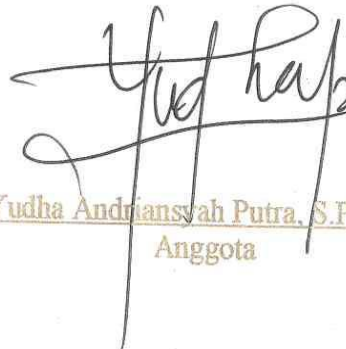 Yudha Andriansyah Putra, S.P
Anggota